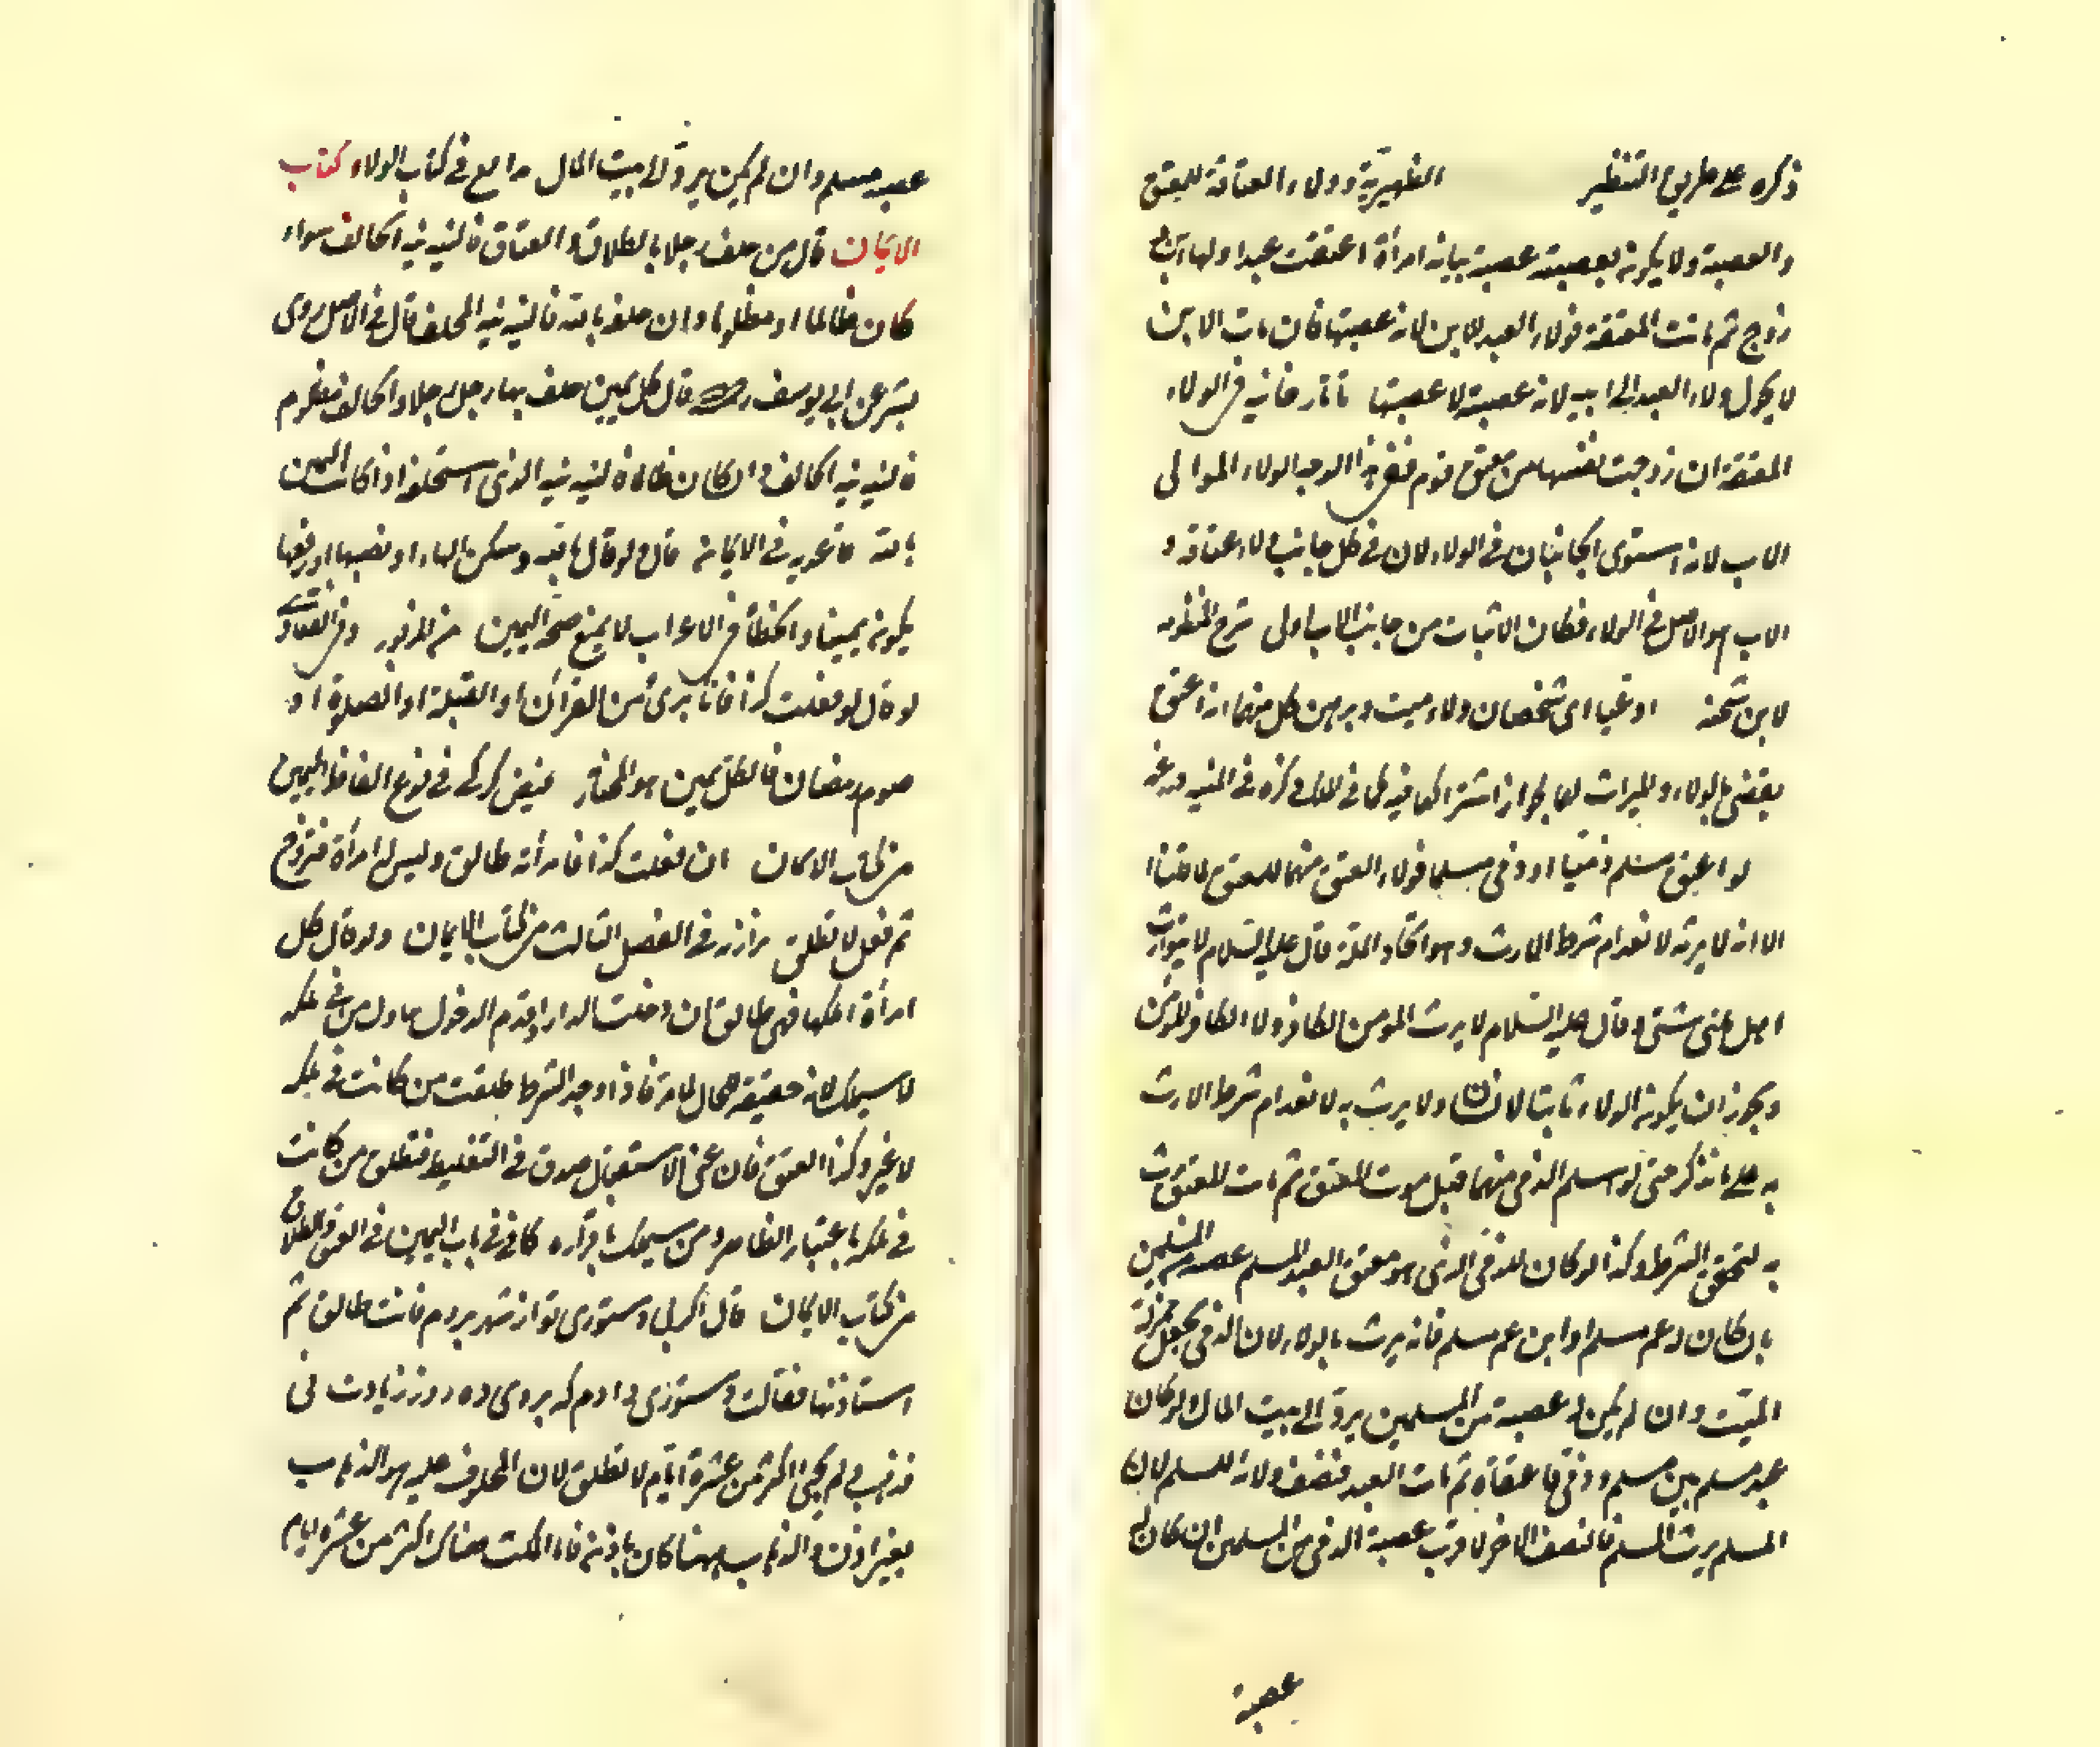 ذكره على طريق التنظير الظهيرية وولاء العتاقة للمعتق
والعصبة ولا يكون لعصبته عصبة بيانه امرأة اعتقت عبدا ولها ابن
زوج ثم ماتت المعتقة فولاء العبد للابن لانه عصبتها فان مات الابن
لا يحول ولاء العبد الى ابيه لانه عصبة لا عصبتها تاتارخانيه في الولاء
المعتقة ان زوجت نفسها من معتق قوم الولاء لموالى
الاب لانه استوى الجانبان في الولاء لان في كل جانب ولاء عتاقة و
الاب هو الاصل في الولاء فكان الاثبات من جانب الاب اولى شرح المنظومه
لابن شحنة ادعيا اى شخصان ولاء ميت وبرهن كل منهما انه اعتق
يقضى بالولاء والميراث لهما لجواز اشتراكهما فيه كما في الملك ذكره في المنيه درر غرر
لو اعتق مسلم ذميا او ذمى مسلما فولاء العتق منهما للمعتق
الا انه لا يرثه لانعدام شرط الارث وهو اتحاد الملة قال عليه السلام لا يتوارث
اهل ملتين شتى وقال عليه السلام لا يرث المؤمن الكافر ولا الكافر المؤمن
ويجوز ان يكون الولاء ثابتا لانسان ولا يرث به لانعدام شرط الارث
به على ما نذكر حتى لو اسلم الذمى منهما قبل موت المعتق ثم مات المعتق يرث
به لتحقق الشرط وكذا لو كان للذمى الذى هو معتق العبد المسلم عصبة من المسلمين
بان كان له عم مسلم او ابن عم مسلم فانه يرث بالولاء لان الذمى يجعل بمنزلة
الميت وان لم يكن له عصبة من المسلمين يرد الى بيت المال ولو كان
عبد مسلم بين مسلم وذمى فاعتقاه ثم مات العبد فنصف ولائه للمسلم لان
المسلم يرث المسلم فالنصف الاخر لاقرب عصبة الذمى من المسلمين ان كان له
عصبة
عصبة مسلم وان لم يكن يرد الى بيت المال في كتاب الولاء كتاب
الايمان قال من حلف رجلا بالطلاق والعتاق فالنيه نية الحالف سواء
كان ظالما او مظلوما وان حلف بالله فالنية نية المحلف قال في الاصل روى
بشر عن ابي يوسف قال كل يمين حلف بها رجل رجلا والحالف مظلوم
فالنيه نية الحالف وان كان ظالما فالنيه نية الذى استحلفه اذا كانت اليمين
بالله في الايمان قال ولو قال بالله وسكن الهاء او نصبها او رفعها
يكون يمينا والخطأ في الاعراب لا يمنع صحة اليمين وفي الفتاوى
لو قال لو فعلت كذا فانا برئ من القرآن او القبلة او الصلوة او
صوم رمضان فالكل يمين هو المختار فيض كركي في نوع الفاظ اليمين
من كتاب الايمان ان فعلت كذا فامرأته طالق وليس له امرأة فتزوج
ثم فعل لا تطلق بزازيه في الفصل الثالث من كتاب الايمان ولو قال كل
امرأة املكها فهى طالق ان دخلت الدار او قدم الدخول تناول من في ملكه
لا سيملك لانه حقيقة للحال فاذا وجد الشرط طلقت من كانت في ملكه
لا غير وكذا العتق فان عنى الاستقبال صدق في التغليظ فتطلق من كانت
في ملكه باعتبار الظاهر ومن سيملك باقراره كافى في باب اليمين في العتق والطلاق
من كتاب الايمان قال اكر بى دستورى تو از شهر بروم فانت طالق ثم
استاذنها فقالت دستورى دادم كه بروى ده روز زيادت نى
فذهب ولم يجئ اكثر من عشرة ايام لا تطلق لان المحلوف عليه هو الذهاب
بغير اذن والذهاب ههنا كان باذنه فاما المكث هناك اكثر من عشرة ايام